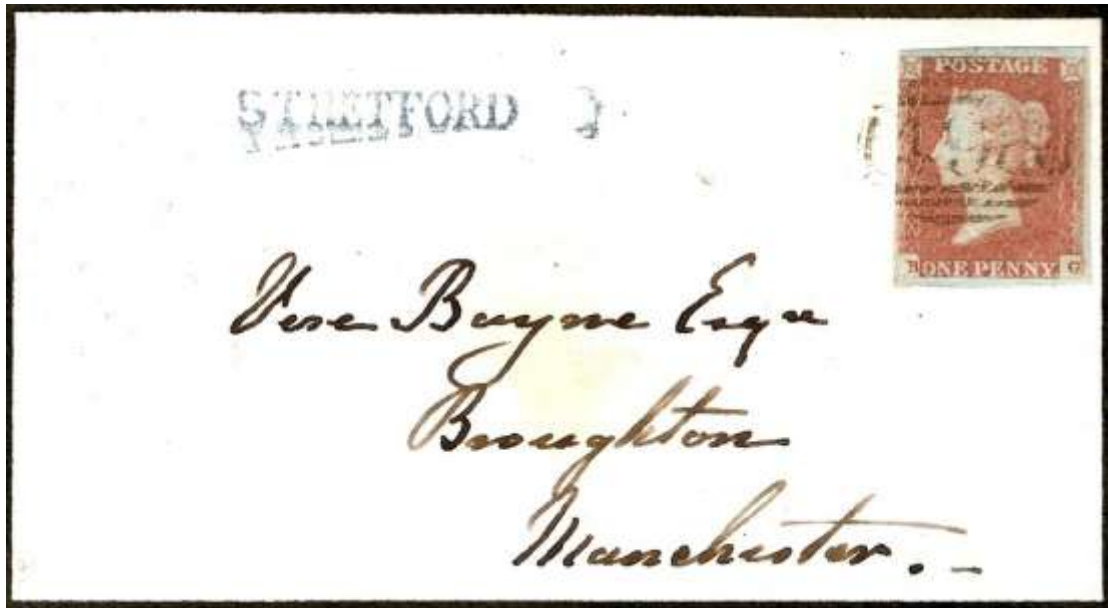 STRETFORD
POSTAGE
B ONE PENNY G
Vere Bayne Esqre
Broughton
Manchester.-